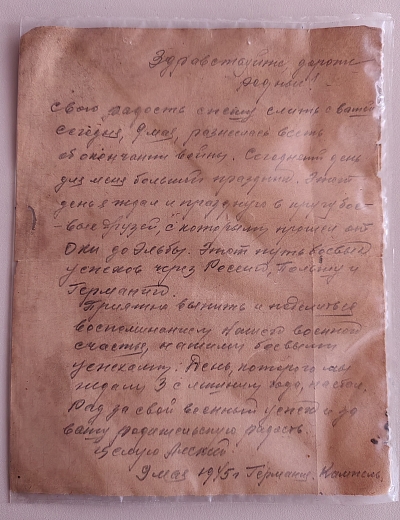 Здравствуйте дорогие
родные!
Свою радость спешу слить с вашей
Сегодня, 9 мая, разнеслась весть
об окончании войны. Сегодняшний день
для меня большой праздник. Этот
день я ждал и праздную в кругу бое-
вых друзей, с которыми прошел от
Оки до Эльбы. Этот путь боевых
успехов через Россию, Польшу и
Германию.
Приятно выпить и поделиться
воспоминанием нашего военного
счастья, нашими боевыми
успехами. День, которого мы
ждали 3 с лишним года, настал.
Рад за свой военный успех и за
вашу родительскую радость.
Целую
9 мая 1945 г Германия.